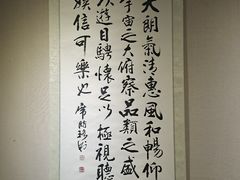 天朗氣清惠風和暢仰
宇宙之大俯察品類之盛
以遊目騁懷足以極視聽
娛信可樂也